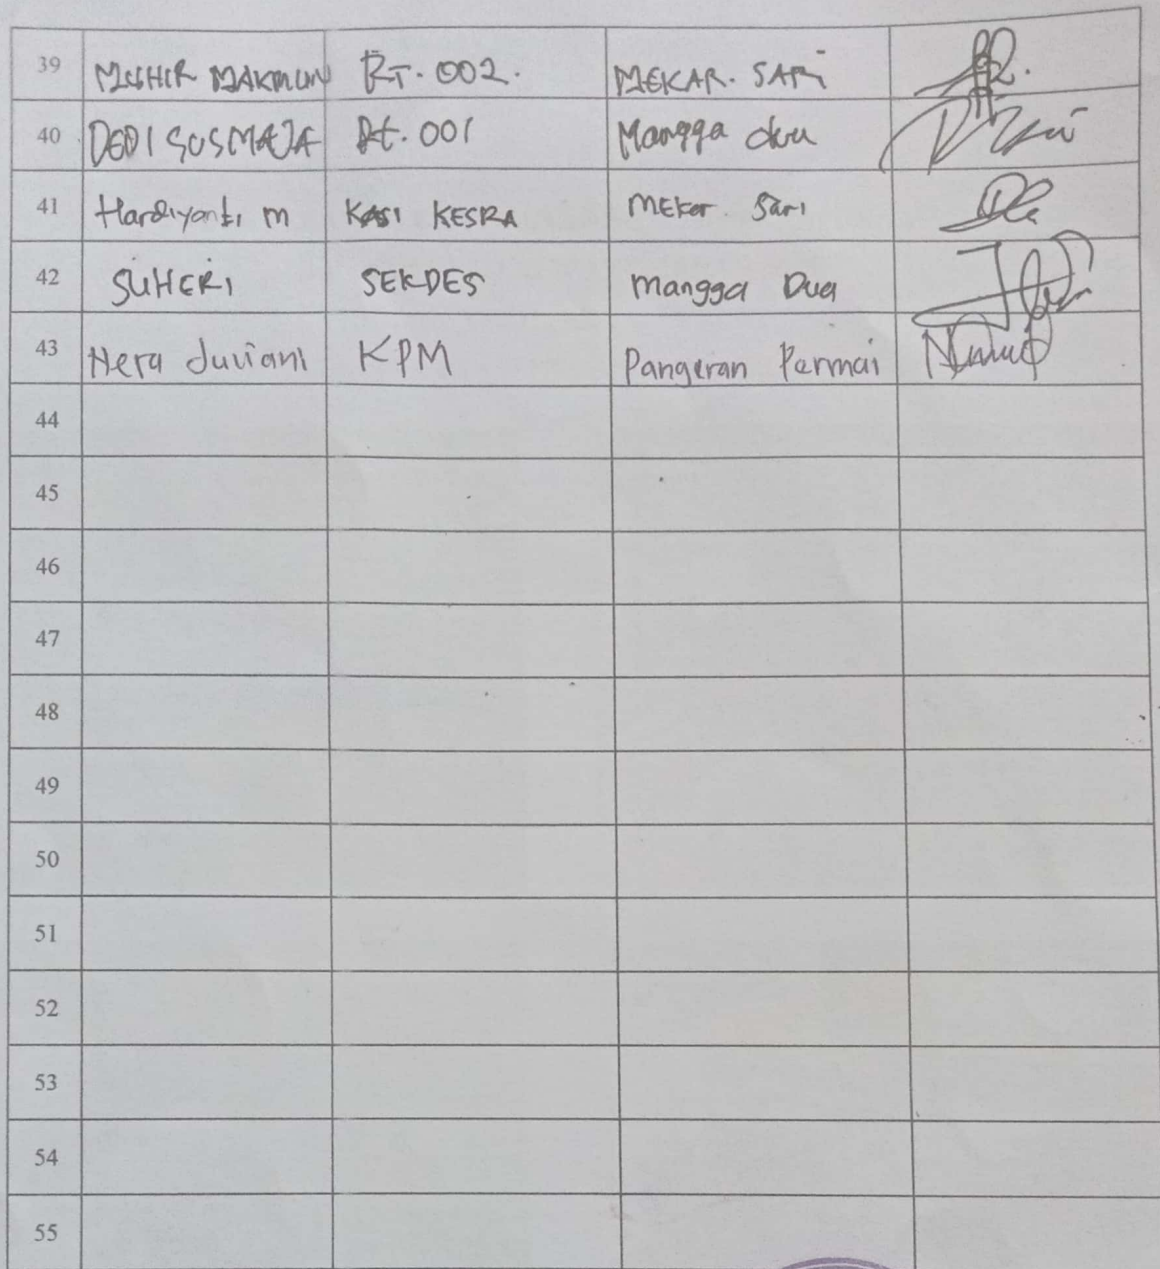 39 MUSHIR MAKMUN RT. 002. MEKAR. SARI
40 DEDI SUSMAJA Rt. 001 Mangga dua
41 Hardiyanti m KASI KESRA MEKar Sari
42 SUHERI SEKDES mangga Dua
43 Hera Juviani KPM Pangeran Permai
44
45
46
47
48
49
50
51
52
53
54
55